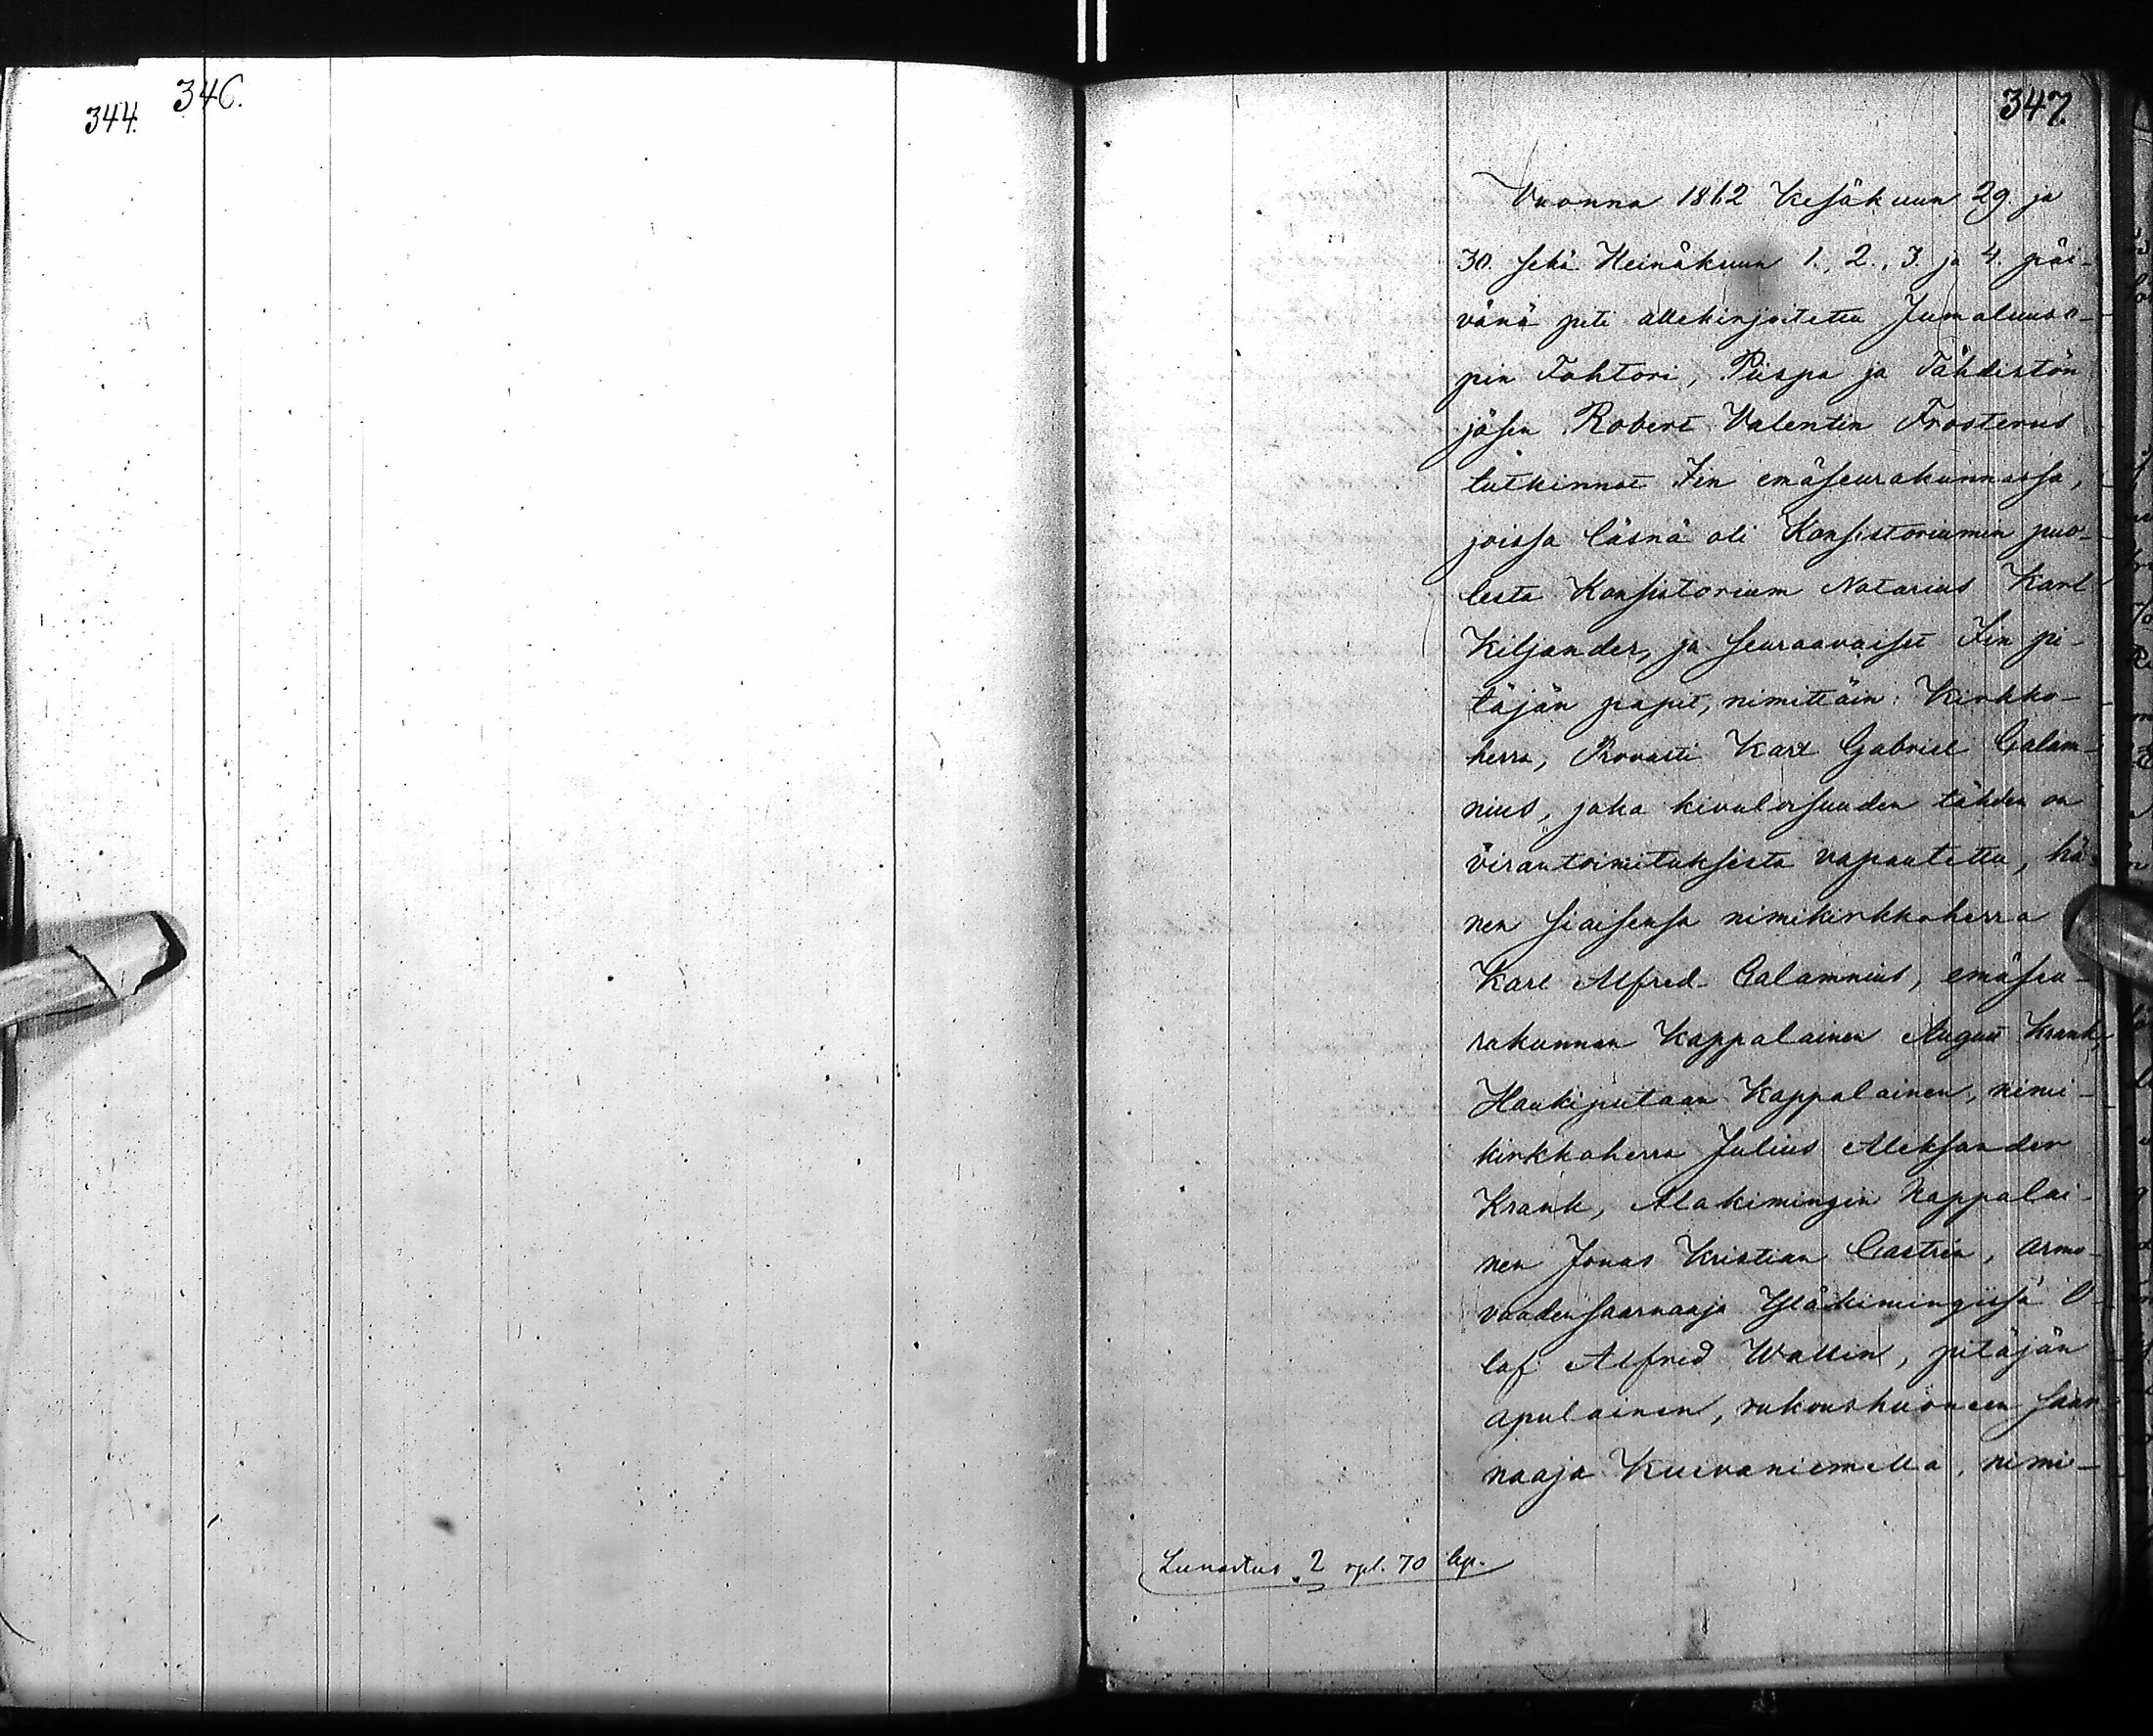 344.
346.
347.
Vuonna 1862 Kesäkuun 29. ja
30. sekä Heinäkuun 1., 2., 3. ja 4. päi-
vänä piti allekirjoitettu Jumaluuso-
pin Tohtori, Piispa ja Tähdistön
jäsen Robert Valentin Frosterus
tutkinnot Iin emäseurakunnassa,
joissa läsnä oli Konsistoriumin puo-
lesta Konsistorium Notarius Karl
Kiljander, ja seuraavaiset Iin pi-
täjän papit, nimittäin: Kirkko-
herra, Provasti Karl Gabriel Calam-
nius, joka kivulosuuden tähden on
virantoimituksesta vapautettu, hä-
nen siaisensa nimikirkkoherra
Karl Alfred Calamnius, emäseu-
rakunnan Kappalainen August Krank,
Haukiputaan Kappalainen, nimi-
kirkkoherra Julius Aleksander
Krank, Alakimingin Kappalai-
nen Jonas Kristian Castrén, armo-
vuodensaarnaaja Yläkimingissä O-
laf Alfred Wallin, pitäjän
apulainen, rukoushuoneen saar-
naaja Kuivaniemellä, nimi-
Lunastus 2 rpl. 70 kp.